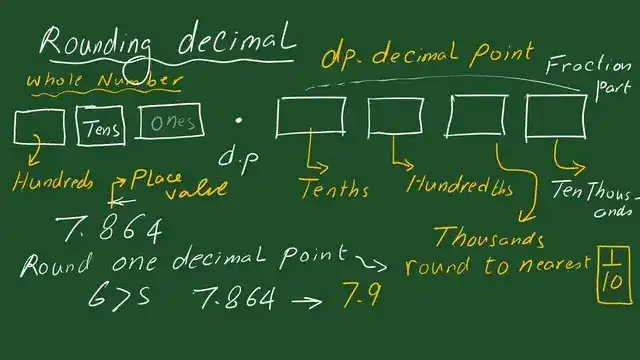 Rounding decimal
dp. decimal point
Fraction part
Whole Number
Tens
Ones
.
d.p
Hundreds
Place value
Tenths
Hundredths
Ten Thous-
ands
7.864
Thousands
Round one decimal point
round to nearest 1/10
6>5 7.864 → 7.9